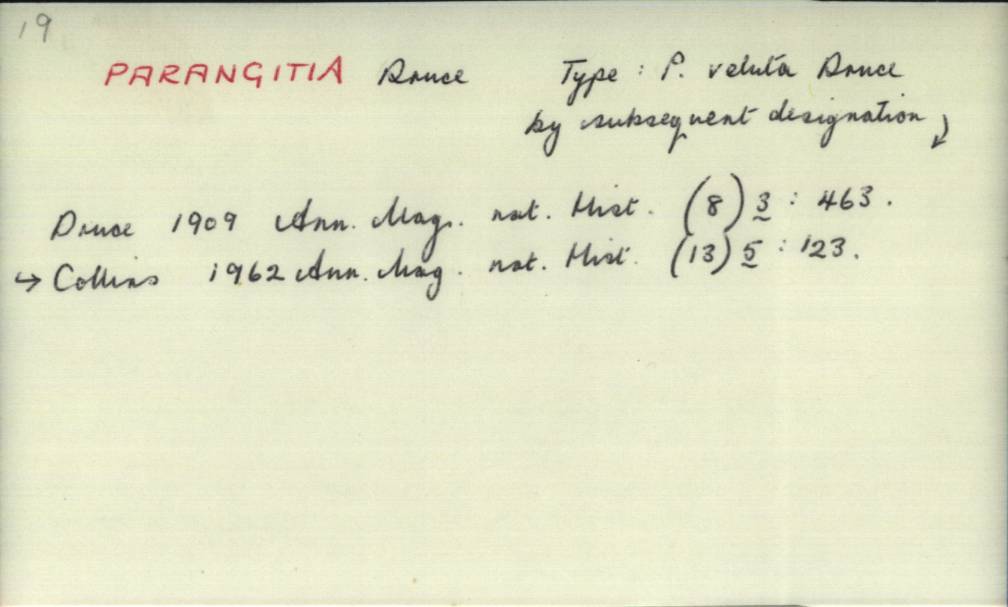 19
PARANGITIA Druce Type : P. veluta Druce
by subsequent designation
Druce 1909 Ann. Mag. nat. Hist. (8) 3 : 463.
→ Collins 1962 Ann. Mag. nat. Hist. (13) 5 : 123.